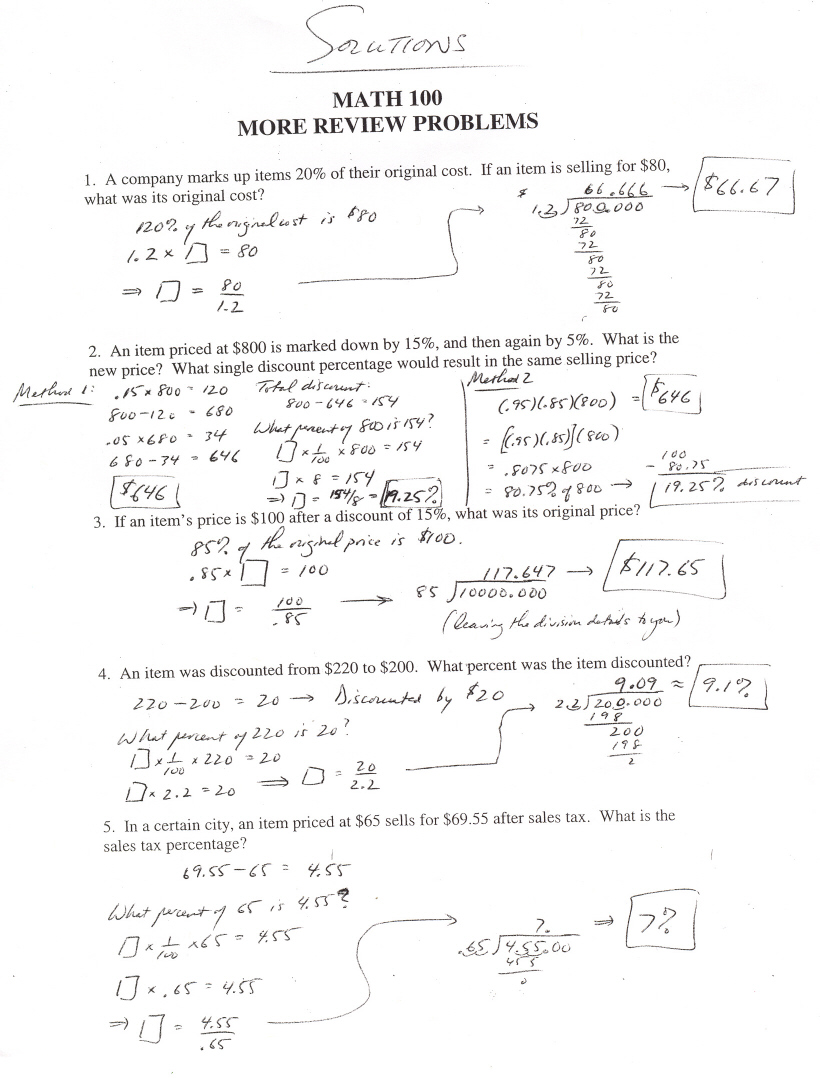 SOLUTIONS
MATH 100
MORE REVIEW PROBLEMS
1. A company marks up items 20% of their original cost. If an item is selling for $80,
what was its original cost?
120% of the original cost is $80
1.2 × □ = 80
⇒ □ = 80/1.2
$ 66.666 → $66.67
1.2 ) 80.0.000
72
80
72
80
72
80
72
80
2. An item priced at $800 is marked down by 15%, and then again by 5%. What is the
new price? What single discount percentage would result in the same selling price?
Method 1:
.15 × 800 = 120
800 - 120 = 680
.05 × 680 = 34
680 - 34 = 646
$646
Total discount:
800 - 646 = 154
What percent of 800 is 154?
□ × 1/100 × 800 = 154
□ × 8 = 154
⇒ □ = 154/8 = 19.25%
Method 2
(.95)(.85)(800) = $646
= [(.95)(.85)](800)
= .8075 × 800
= 80.75% of 800 →
100
- 80.75
19.25% discount
3. If an item's price is $100 after a discount of 15%, what was its original price?
85% of the original price is $100.
.85 × □ = 100
⇒ □ = 100/.85 →
117.647 → $117.65
85 ) 10000.000
(leaving the division details to you)
4. An item was discounted from $220 to $200. What percent was the item discounted?
220 - 200 = 20 → Discounted by $20
What percent of 220 is 20?
□ × 1/100 × 220 = 20
□ × 2.2 = 20 ⇒ □ = 20/2.2
9.09 ≈ 9.1%
2.2 ) 20.0.000
198
200
198
2
5. In a certain city, an item priced at $65 sells for $69.55 after sales tax. What is the
sales tax percentage?
69.55 - 65 = 4.55
What percent of 65 is 4.55?
□ × 1/100 × 65 = 4.55
□ × .65 = 4.55
⇒ □ = 4.55/.65
7. ⇒ 7%
.65 ) 4.55.00
455
0